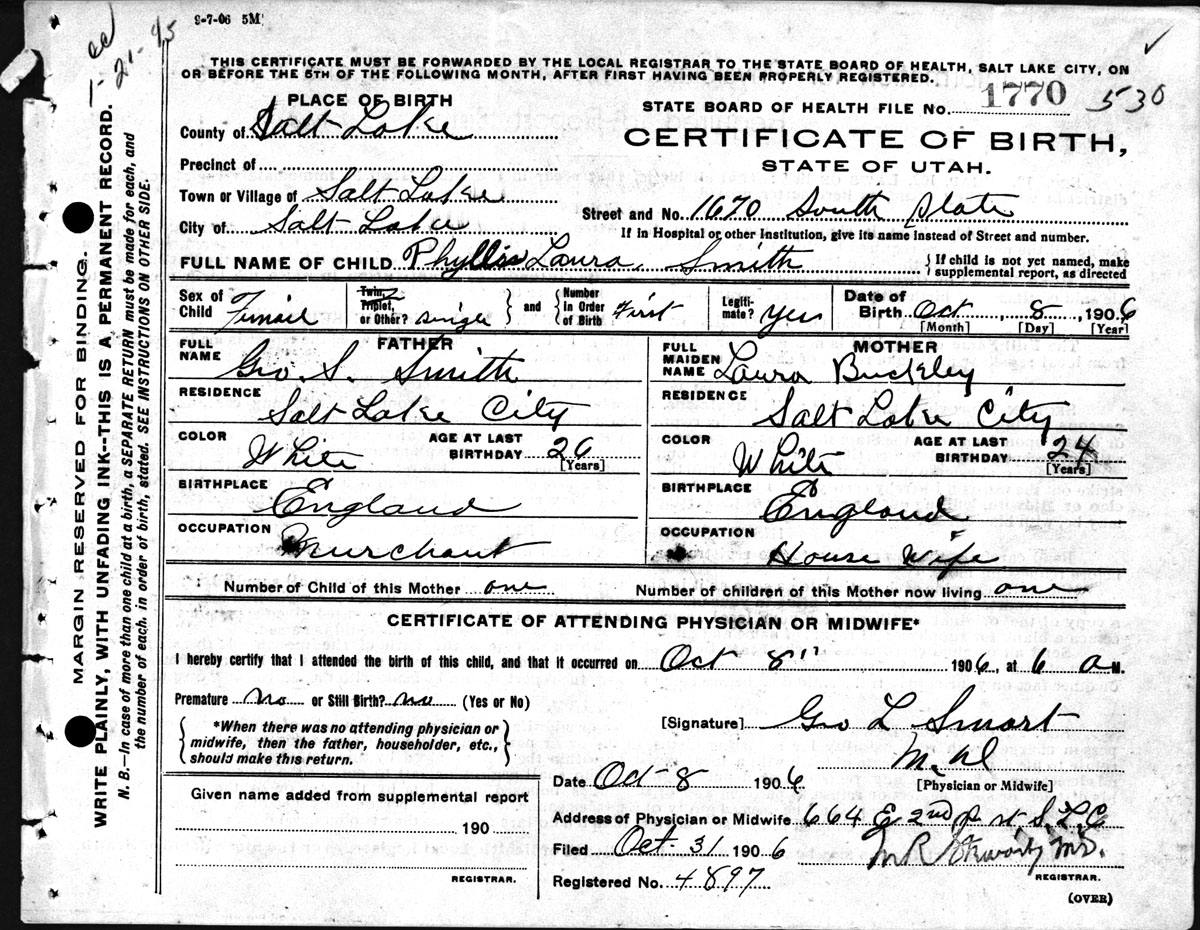 9-7-06 5M
1-21-45
THIS CERTIFICATE MUST BE FORWARDED BY THE LOCAL REGISTRAR TO THE STATE BOARD OF HEALTH, SALT LAKE CITY, ON
OR BEFORE THE 5TH OF THE FOLLOWING MONTH, AFTER FIRST HAVING BEEN PROPERLY REGISTERED.
PLACE OF BIRTH
STATE BOARD OF HEALTH FILE No. 1770 530
County of Salt Lake
CERTIFICATE OF BIRTH,
STATE OF UTAH.
Precinct of
Town or Village of Salt Lake
Street and No. 1670 South State
City of Salt Lake
If in Hospital or other Institution, give its name instead of Street and number.
FULL NAME OF CHILD Phyllis Laura Smith
{ If child is not yet named, make
supplemental report, as directed
Sex of Child Female
Twin, Triplet, or Other? single
and
Number In Order of Birth First
Legiti- mate? Yes
Date of Birth Oct, 8, 1906
[Month] [Day] [Year]
FATHER
FULL NAME Geo S. Smith
RESIDENCE Salt Lake City
COLOR White
AGE AT LAST BIRTHDAY 26
[Years]
BIRTHPLACE England
OCCUPATION Murchant
MOTHER
FULL MAIDEN NAME Laura Buckley
RESIDENCE Salt Lake City
COLOR White
AGE AT LAST BIRTHDAY 24
[Years]
BIRTHPLACE England
OCCUPATION House Wife
Number of Child of this Mother one
Number of children of this Mother now living one
CERTIFICATE OF ATTENDING PHYSICIAN OR MIDWIFE*
I hereby certify that I attended the birth of this child, and that it occurred on Oct 8" 1906, at 6 a M.
Premature no or Still Birth? no (Yes or No)
{ *When there was no attending physician or
midwife, then the father, householder, etc.,
should make this return. }
[Signature] Geo L Smart
M.D
[Physician or Midwife]
Date Oct 8 1906
Address of Physician or Midwife 664 E 2nd So st S.L.C
Filed Oct. 31 1906
REGISTRAR.
Registered No. 4897
(OVER)
Given name added from supplemental report
190
REGISTRAR.
MARGIN RESERVED FOR BINDING.
WRITE PLAINLY, WITH UNFADING INK--THIS IS A PERMANENT RECORD.
N. B.—In case of more than one child at a birth, a SEPARATE RETURN must be made for each, and
the number of each, in order of birth, stated. SEE INSTRUCTIONS ON OTHER SIDE.